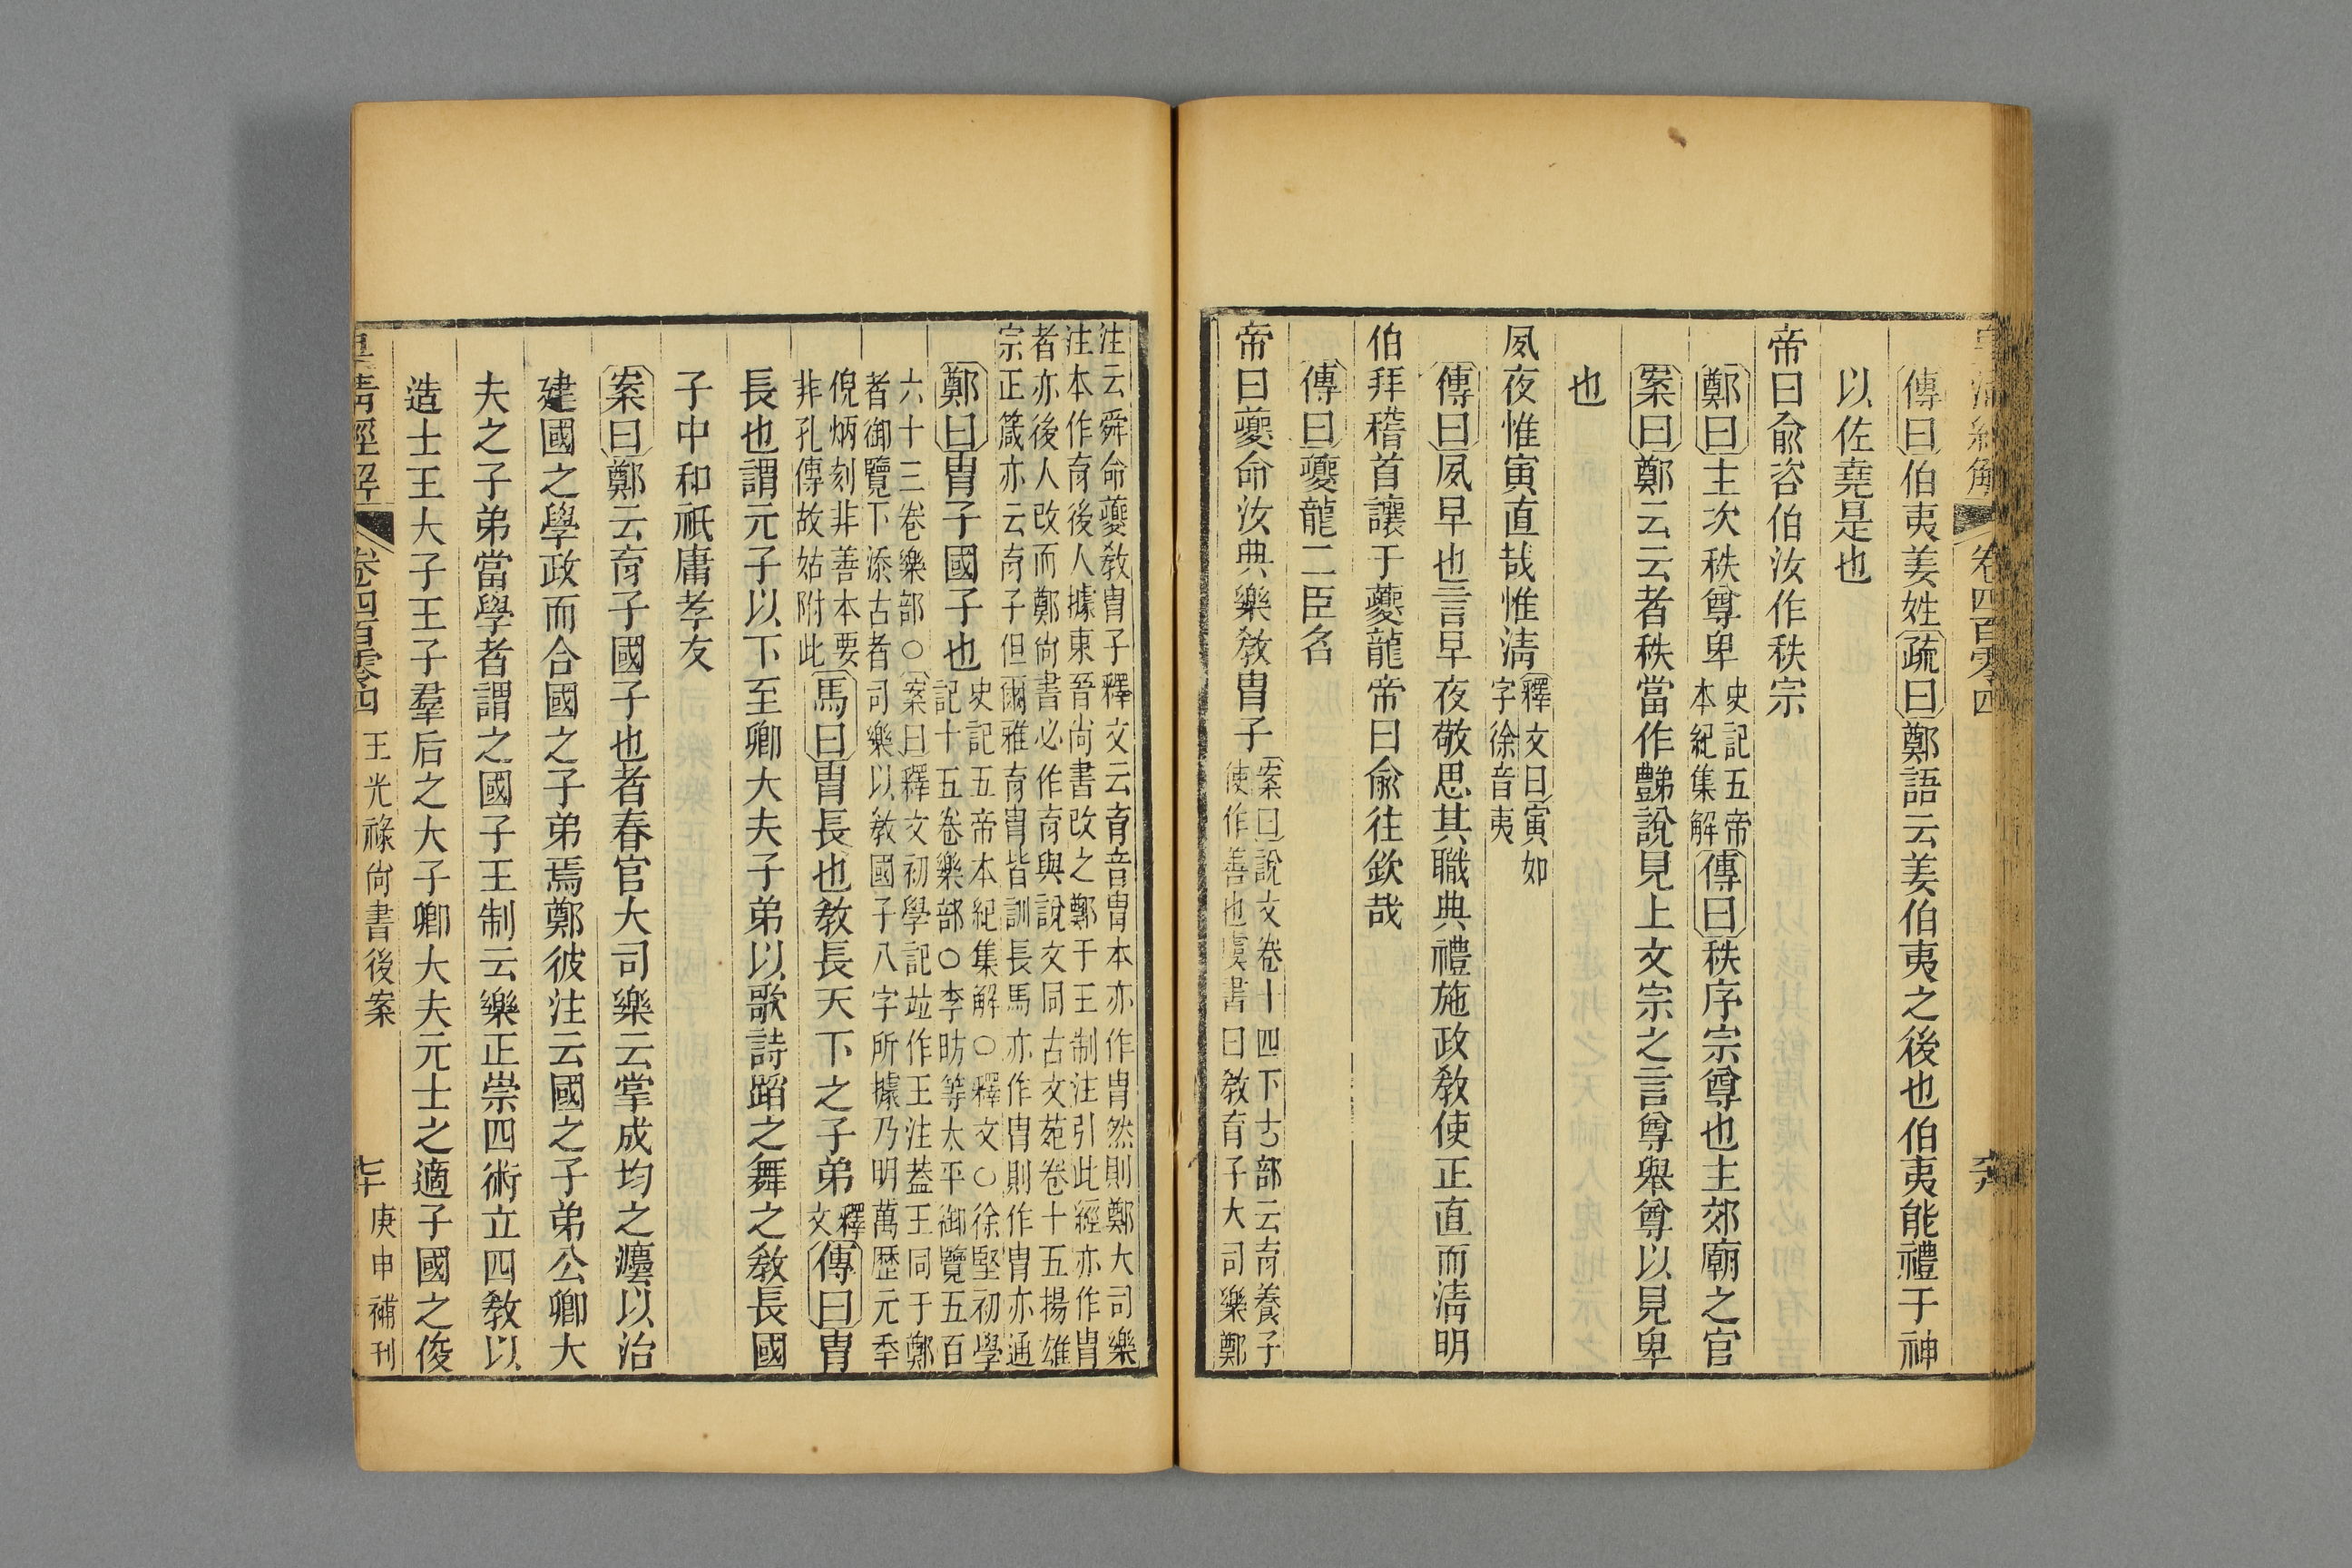 傳曰伯夷姜姓疏曰鄭語云姜伯夷之後也伯夷能禮于神
以佐堯是也
帝曰兪咨伯汝作秩宗
鄭曰主次秩尊卑史記五帝
本紀集解傳曰秩序宗尊也主郊廟之官
案曰鄭云云者秩當作豑說見上文宗之言尊舉尊以見卑
也
夙夜惟寅直哉惟淸釋文曰寅如
字徐音夷
傳曰夙早也言早夜敬思其職典禮施政敎使正直而淸明
伯拜稽首讓于夔龍帝曰兪往欽哉
傳曰夔龍二臣名
帝曰夔命汝典樂敎胄子案曰說文卷十四下𠫓部云育養子
使作善也虞書曰敎育子大司樂鄭
注云舜命夔敎胄子釋文云育音胄本亦作胄然則鄭大司樂
注本作育後人據東晉尙書改之鄭于王制注引此經亦作胄
者亦後人改而鄭尙書必作育與說文同古文苑卷十五揚雄
宗正箴亦云育子但爾雅育胄皆訓長馬亦作胄則作胄亦通
鄭曰胄子國子也史記五帝本紀集解○釋文○徐堅初學
記十五卷樂部○李昉等太平御覽五百
六十三卷樂部○案曰釋文初學記竝作王注葢王同于鄭
者御覽下添古者司樂以敎國子八字所據乃明萬歷元季
倪炳刻非善本要
非孔傳故姑附此馬曰胄長也敎長天下之子弟釋
文傳曰胄
長也謂元子以下至卿大夫子弟以歌詩蹈之舞之敎長國
子中和祇庸孝友
案曰鄭云育子國子也者春官大司樂云掌成均之灋以治
建國之學政而合國之子弟焉鄭彼注云國之子弟公卿大
夫之子弟當學者謂之國子王制云樂正崇四術立四敎以
造士王大子王子羣后之大子卿大夫元士之適子國之俊
皇淸經解 卷四百零四 王光祿尙書後案 庚申補刊